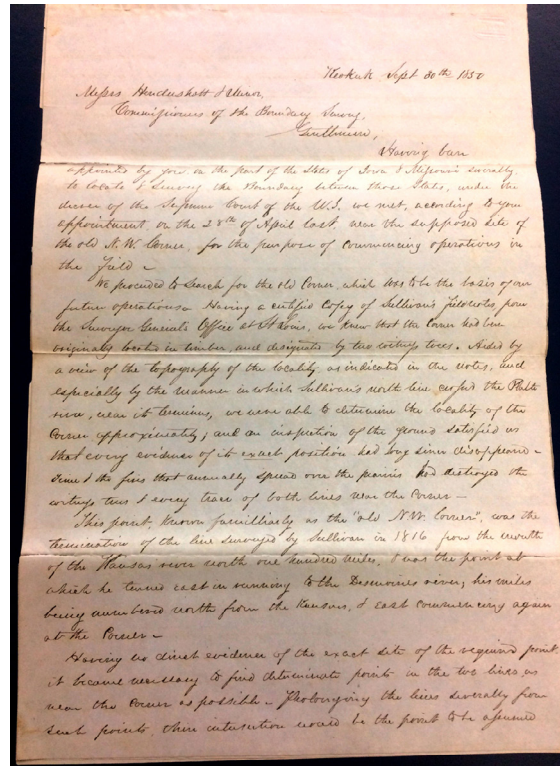 Keokuk Sept 30th 1850
Messrs Hendershott & Minor,
Commissioners of the Boundary Survey,
Gentlemen,
Having been
appointed by you, on the part of the States of Iowa & Missouri severally,
to locate & survey the Boundary between those States, under the
decree of the Supreme Court of the U.S. we met, according to your
appointment, on the 28th of April last, near the supposed site of
the old N.W. Corner, for the purpose of commencing operations in
the field –
We proceeded to search for the old Corner, which was to be the basis of our
future operations – Having a certified Copy of Sullivan's field notes, from
the Surveyor Generals Office at St Louis, we knew that the Corner had been
originally located in timber, and designated by two witness trees. Aided by
a view of the topography of the locality, as indicated in the notes, and
especially by the manner in which Sullivan's north line crossed the Platte
river, near its terminus, we were able to determine the locality of the
Corner approximately; and an inspection of the ground satisfied us
that every evidence of its exact position had long since disappeared –
Time & the fires that annually spread over the prairies had destroyed the
witness trees & every trace of both lines near the Corner –
This point, known familliarly as the "old N.W. Corner", was the
termination of the line surveyed by Sullivan in 1816 from the mouth
of the Kansas river north one hundred miles, & was the point at
which he turned east in running to the Desmoines river; his miles
being numbered north from the Kansas, & east commencing again
at the Corner –
Having no direct evidence of the exact site of the required point,
it became necessary to find determinate points in the two lines, as
near the Corner as possible – Prolonging the lines severally from
such points, their intersection would be the point to be assumed